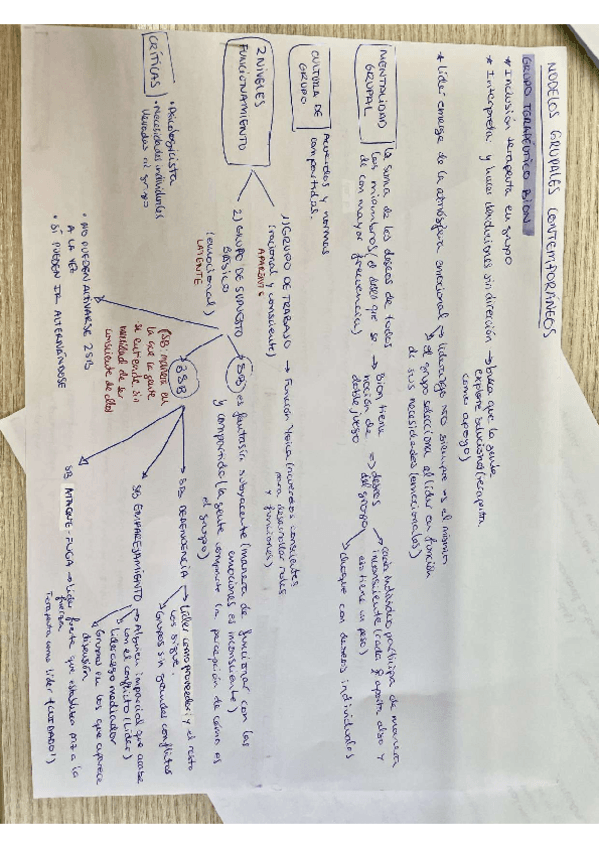 MODELOS GRUPALES CONTEMPORÁNEOS
GRUPO TERAPÉUTICO BION
* Inclusión terapeuta en grupo
* Interpretar y hacer devoluciones sin dirección → busca que la gente
explore soluciones (terapeuta
como apoyo)
* Líder emerge de la atmósfera emocional → liderazgo no siempre es el mismo
→ el grupo selecciona el líder en función
de sus necesidades (emocionales)
MENTALIDAD
GRUPAL
la suma de los deseos de todos
los miembros (el deseo que se
da con mayor frecuencia)
→ Bion tiene
noción de
doble juego
⇒ deseos
del grupo
→ cada individuo participa de manera
inconsciente (cada uno aporta algo y
eso tiene un peso)
→ choque con deseos individuales
CULTURA DE
GRUPO
Acuerdos y normas
compartidas.
2 NIVELES
FUNCIONAMIENTO
1) GRUPO DE TRABAJO → Función única (acuerdos conscientes
(racional y consciente)
para desarrollar roles
y funciones)
APARENTE
2) GRUPO DE SUPUESTO
BÁSICO
(emocional)
LATENTE
SB) es fantasía subyacente (manera de funcionar con las
emociones es inconsciente)
y compartida (la gente comparte la percepción de cómo es
el grupo)
3 SB
(SB: manera en
la que la gente
se entiende sin
necesidad de ser
consciente de ellos
SB DEPENDENCIA → Líder como proveedor y el resto
los sigue.
→ Grupos sin grandes conflictos
SB EMPAREJAMIENTO → Alguien imparcial que acabe
con el conflicto (líder)
→ Liderazgo mediador
→ Grupos en los que aparece
discusión
SB ATAQUE-FUGA → Líder fuerte que establece
fuerza
Terapeuta como líder (¡CUIDADO!)
• NO PUEDEN ACTIVARSE 2 SB
A LA VEZ
• SÍ PUEDEN IR ALTERNÁNDOSE
CRÍTICAS
• Psicologicista
• Necesidades individuales
llevadas al grupo